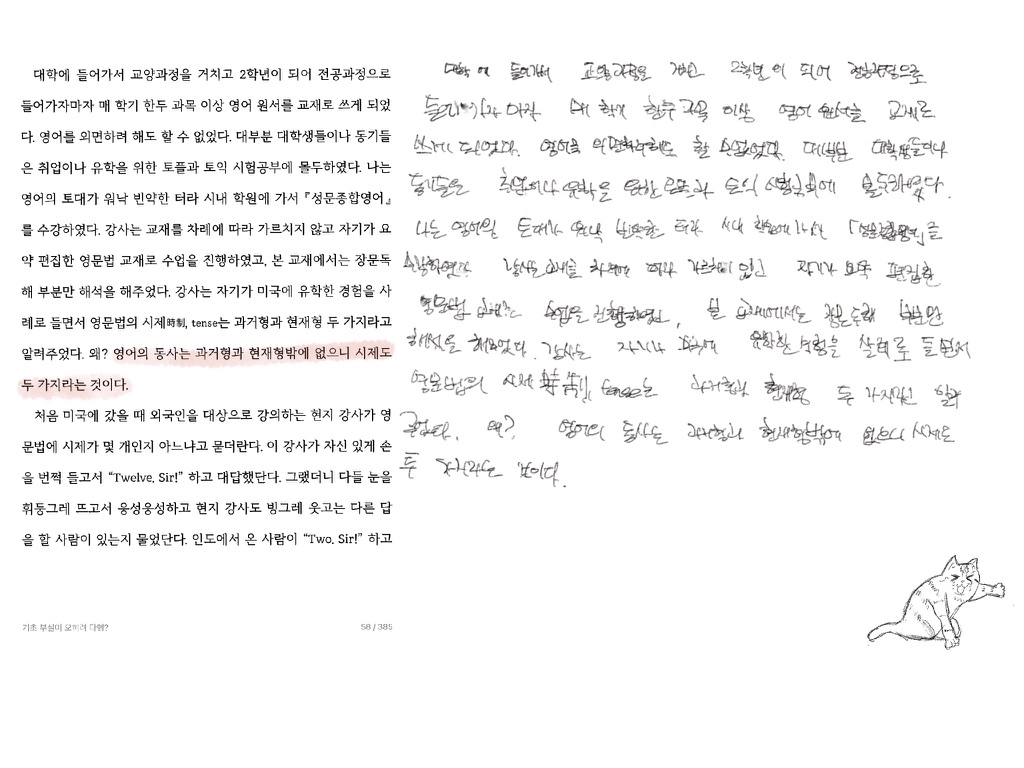 대학에 들어가서 교양과정을 거치고 2학년이 되어 전공과정으로
들어가자마자 매 학기 한두 과목 이상 영어 원서를 교재로 쓰게 되었
다. 영어를 외면하려 해도 할 수 없었다. 대부분 대학생들이나 동기들
은 취업이나 유학을 위한 토플과 토익 시험공부에 몰두하였다. 나는
영어의 토대가 워낙 빈약한 터라 시내 학원에 가서 『성문종합영어』
를 수강하였다. 강사는 교재를 차례에 따라 가르치지 않고 자기가 요
약 편집한 영문법 교재로 수업을 진행하였고, 본 교재에서는 장문독
해 부분만 해석을 해주었다. 강사는 자기가 미국에 유학한 경험을 사
례로 들면서 영문법의 시제時制, tense는 과거형과 현재형 두 가지라고
알려주었다. 왜? 영어의 동사는 과거형과 현재형밖에 없으니 시제도
두 가지라는 것이다.
처음 미국에 갔을 때 외국인을 대상으로 강의하는 현지 강사가 영
문법에 시제가 몇 개인지 아느냐고 묻더란다. 이 강사가 자신 있게 손
을 번쩍 들고서 “Twelve, Sir!” 하고 대답했단다. 그랬더니 다들 눈을
휘둥그레 뜨고서 웅성웅성하고 현지 강사도 빙그레 웃고는 다른 답
을 할 사람이 있는지 물었단다. 인도에서 온 사람이 “Two, Sir!” 하고
기초 부실이 오히려 다행?
58 / 385
대학에 들어가서 교양과정을 거치고 2학년이 되어 전공과정으로
들어가자마자 매 학기 한두 과목 이상 영어 원서를 교재로
쓰게 되었다. 영어를 외면하려해도 할 수 없었다. 대부분 대학생들이나
동기들은 취업이나 유학을 위한 토플과 토익 시험공부에 몰두하였다.
나는 영어의 토대가 워낙 빈약한 터라 시내 학원에 가서 「성문종합영어」를
수강하였다 강사는 교재를 차례에 따라 가르치지 않고 자기가 요약 편집한
영문법 교재로 수업을 진행하였고, 본 교재에서는 장문독해 부분만
해석을 해주었다. 강사는 자기가 미국에 유학한 경험을 살려로 들면서
영문법의 시제時制, tense는 과거형과 현재형 두 가지라고 알려
주었다. 왜? 영어의 동사는 과거형과 현재형밖에 없으니 시제도
두 가지라는 것이다.